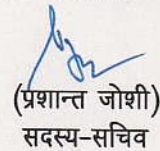 (प्रशान्त जोशी)
सदस्य-सचिव